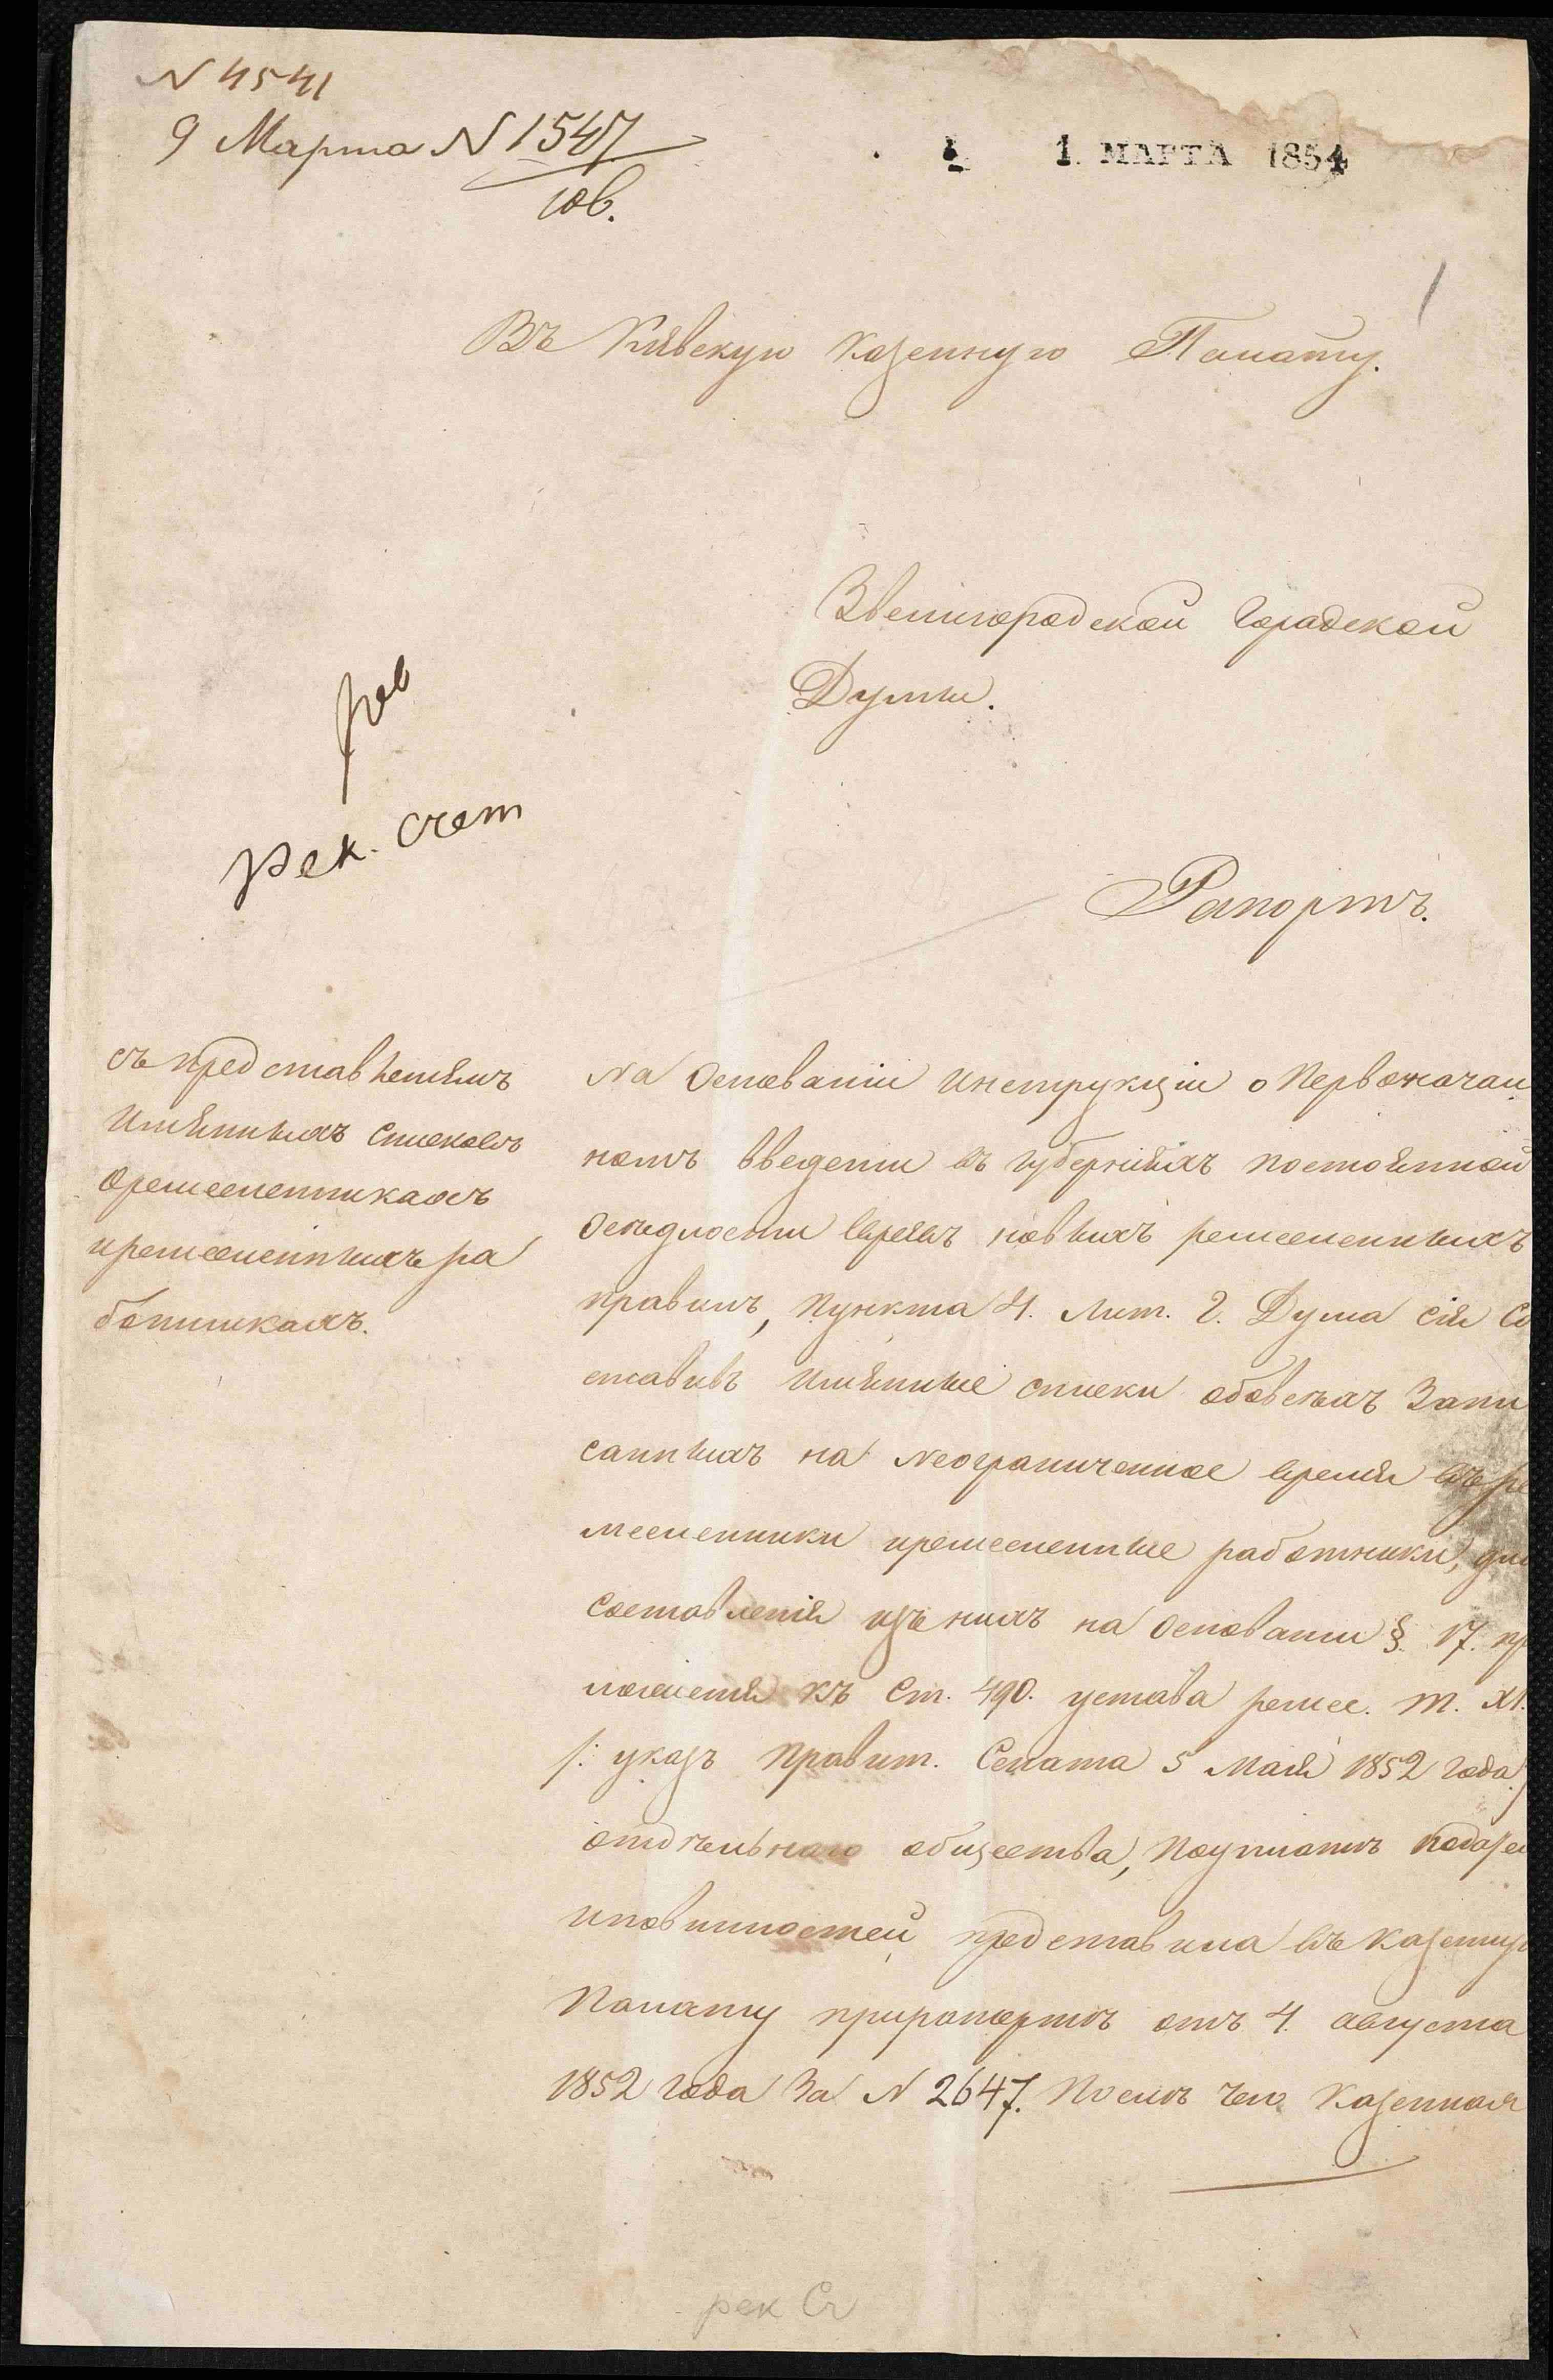 N 4541
9 Марта N 1547
1. МАРТА 1854
1
Въ Кіевскую Казенную Палату.
Звенигородской Городской
Думы.
рев
рек. счет
Рапортъ.
съ представленіемъ
Имянныхъ списковъ
оремесленникахъ
иремесленныхъ ра
ботникахъ.
На Основаніи Инструкціи о Первоначаль
номъ введеніи въ губерніяхъ постоянной
Оседлости евреевъ новыхъ ремесленныхъ
правилъ, пункта 4. Лит. 2. Дума сія Со
ставивъ имянные списки обовсехъ Запи
санныхъ на неограниченное время въ ре
месленники иремесленные работники, для
составленія изъ нихъ на Основаніи §. 17. пр
ложенія къ Ст. 490. устава ремес. Т. XI.
/: указъ Правит. Сената 5 Мая 1852 года
отдѣльнаго общества, поуплатъ податей
иповинностей представила въ Казенную
Палату прирапортъ отъ 4. августа
1852 года За N 2647. Посемъ чего Казенная
рек Сч